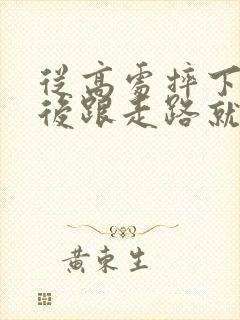 從高處摔下
後跟走路就
黃東生